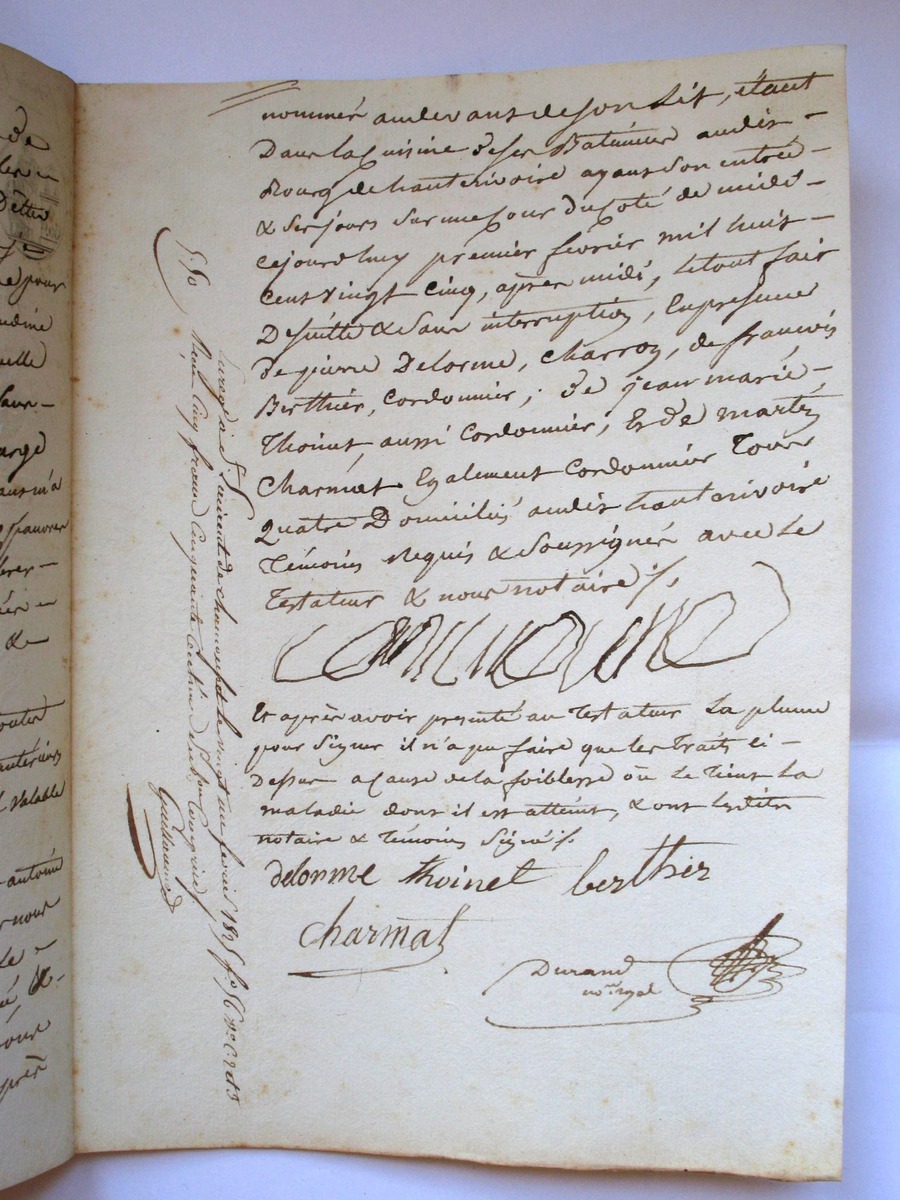 nommé audevant de son Lit, étant
Dans la Cuisine de ses Batimens audit -
Bourg de hauterivoire ayant son entrée -
& ses jours sur une Cour du Coté de midi -
cejourdhuy premier février mil huit -
Cent vingt Cinq, après midi, le tout fait
De suitte & sans interruption, En presence
de pierre Delorme, Charron, de françois
Berthier, Cordonnier, ; de jean marie -
Thoinet, aussi Cordonnier, Et de martin
Charmat Egalement Cordonnier Tous
Quatre Domiciliés audit hauterivoire
Témoins Requis & Soussignés avec Le
Testateur & nous notaire ./.
Et après avoir presenté au Testateur La plume
pour signer il n'a pu faire que les traits ci -
Dessus a cause de la foiblesse où Le tient La
maladie dont il est atteint, & ont lesdits
notaire & Témoins Signé ./.
delorme thoinet berthier
Charmat
Durand
no.re royal
5.50
Enregistré à St Laurent de chamousset le vingt un février 1825 fo
Reçu Cinq francs Cinquante Centimes dixième Compris
Guillaumod